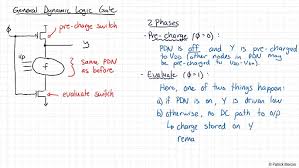 General Dynamic Logic Gate
φ
pre-charge switch
Y
i/p
f
same PDN
as before
evaluate switch
2 Phases
- Pre-charge (φ=0):
PDN is off and Y is pre-charged
to VDD (other nodes in PDN may
be pre-charged to VDD-VTn).
- Evaluate (φ=1):
Here, one of two things happen:
a) if PDN is on, Y is driven low
b) otherwise, no DC path to o/p
↳ charge stored on Y
rema